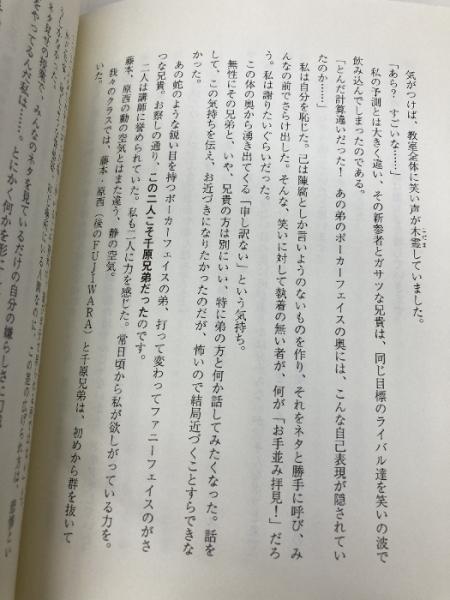 気がつけば、教室全体に笑い声が木霊していました。
こだま
「あら？ すごいな……」
私の予測とは大きく違い、その新参者とガサツな兄貴は、同じ目標のライバル達を笑いの波で
飲み込んでしまったのである。
「とんだ計算違いだった！ あの弟のポーカーフェイスの奥には、こんな自己表現が隠されてい
たのか……」
私は自分を恥じた。己は陳腐としか言いようのないものを作り、それをネタと勝手に呼び、み
んなの前でさらけ出した。そんな、笑いに対して執着の無い者が、何が「お手並み拝見！」だろ
う。私は謝りたいぐらいだった。
この体の奥から湧き出てくる「申し訳ない」という気持ち。
無性にその兄弟と、いや、兄貴の方は別にいい、特に弟の方と何か話してみたくなった。話を
して、この気持ちを伝え、お近づきになりたかったのだが、怖いので結局近づくことすらできな
かった。
あの蛇のような鋭い目を持つポーカーフェイスの弟、打って変わってファニーフェイスのがさ
つな兄貴。お察しの通り、この二人こそ千原兄弟だったのです。
二人は講師に誉められていた。私も二人に力を感じた。常日頃から私が欲しがっている力を。
藤本、原西の動の空気とはまた違う、静の空気。
我々のクラスでは、藤本・原西（後のＦＵＪＩＷＡＲＡ）と千原兄弟は、初めから群を抜いて
いた。
ネタ見せの授業で、みんなのネタを見ているだけの自分の嫌らしさに
をやってるんだ私は……。とにかく何かを形に